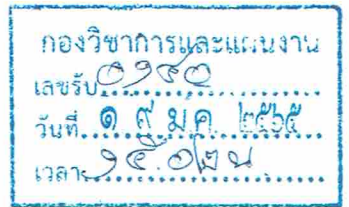 กองวิชาการและแผนงาน
เลขรับ
วันที่ ๑ ๙ ม.ค. ๒๕๖๕
เวลา ๑๕.๐๒ น